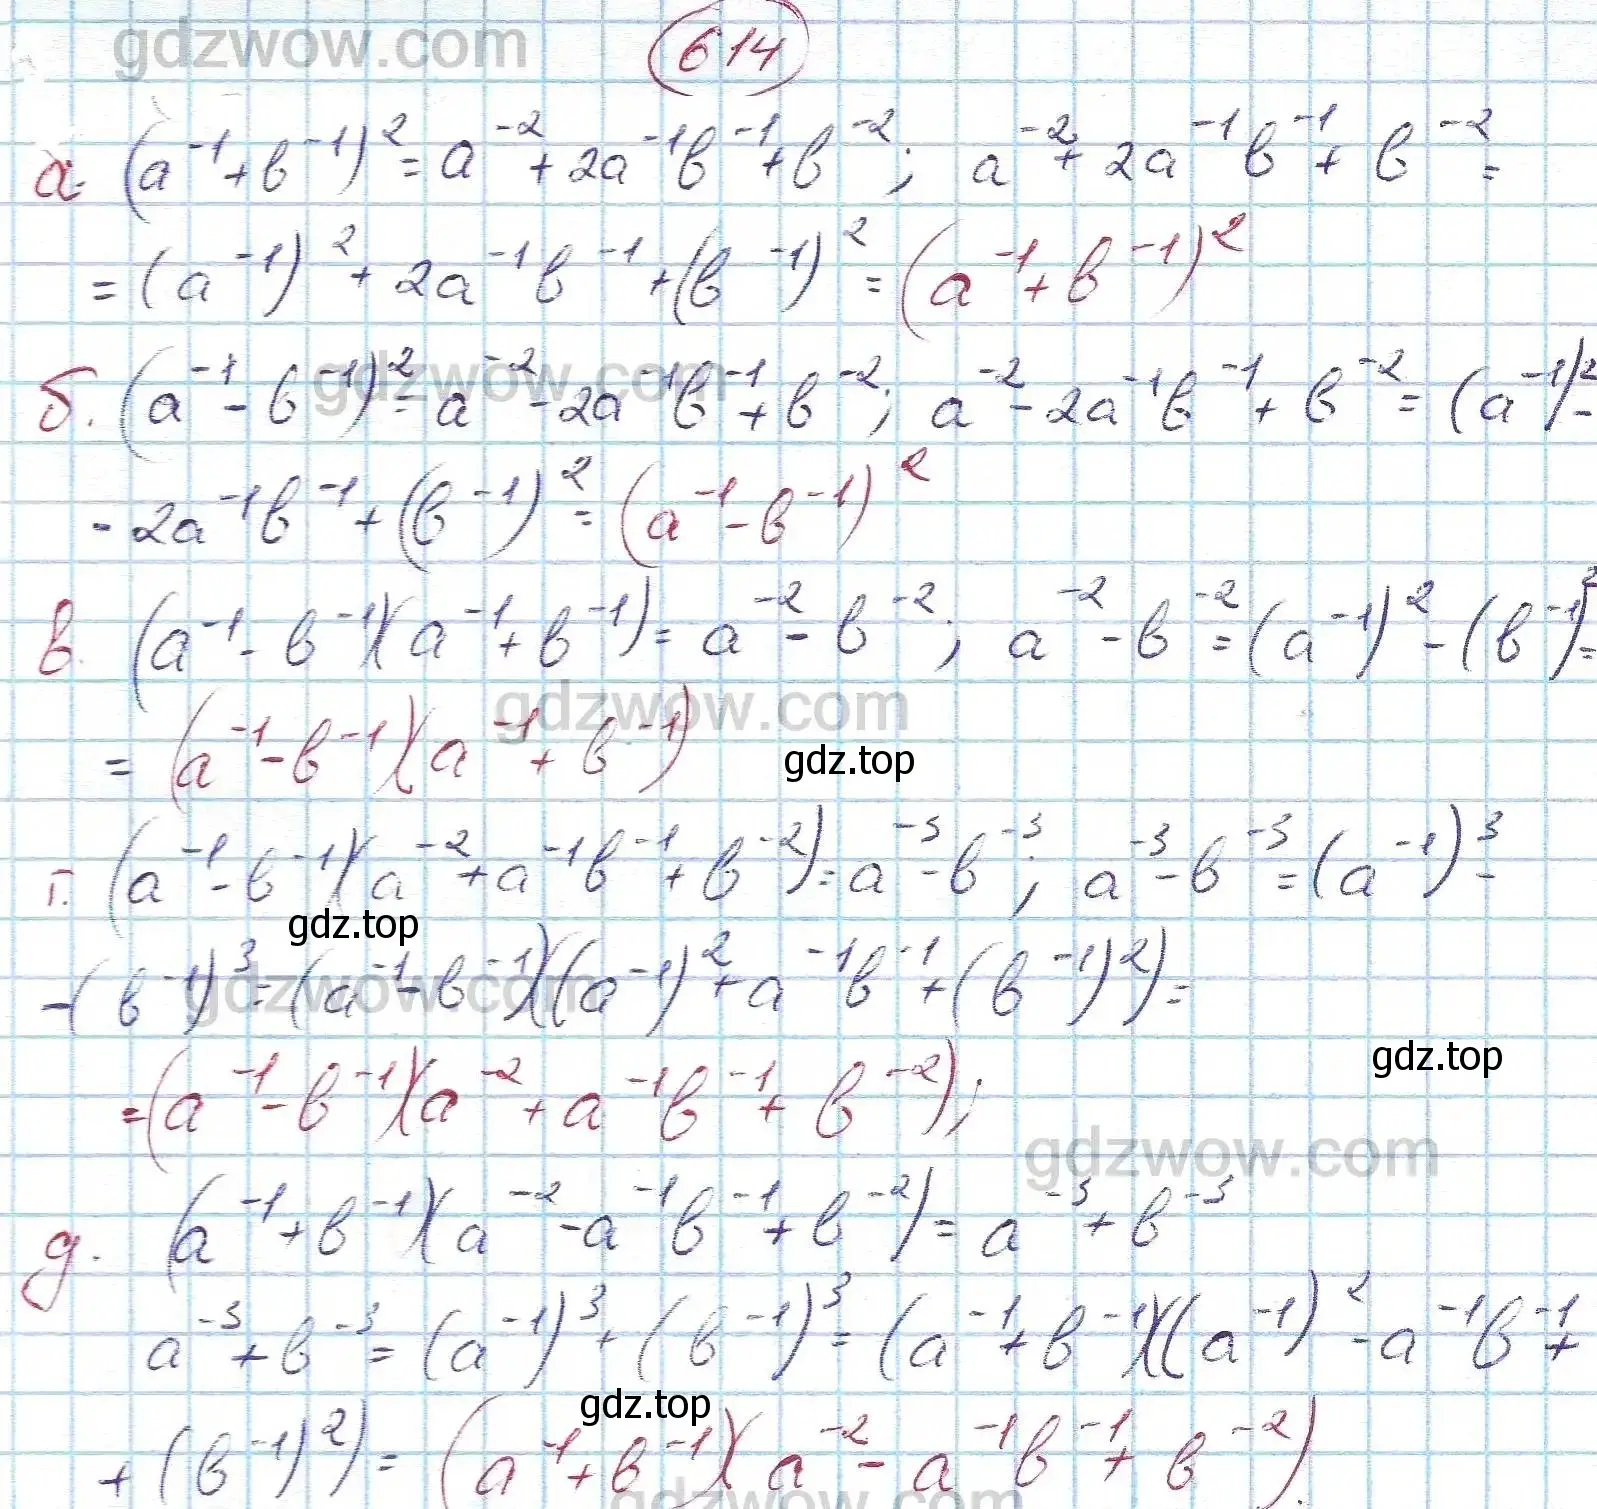 gdzwow.com
614
а. (a⁻¹+b⁻¹)² = a⁻²+2a⁻¹b⁻¹+b⁻²; a⁻²+2a⁻¹b⁻¹+b⁻² =
= (a⁻¹)²+2a⁻¹b⁻¹+(b⁻¹)² = (a⁻¹+b⁻¹)²
gdzwow.com
б. (a⁻¹-b⁻¹)² = a⁻²-2a⁻¹b⁻¹+b⁻²; a⁻²-2a⁻¹b⁻¹+b⁻² = (a⁻¹)²-
-2a⁻¹b⁻¹+(b⁻¹)² = (a⁻¹-b⁻¹)²
в. (a⁻¹-b⁻¹)(a⁻¹+b⁻¹) = a⁻²-b⁻²; a⁻²-b⁻² = (a⁻¹)²-(b⁻¹)² =
gdzwow.com
= (a⁻¹-b⁻¹)(a⁻¹+b⁻¹)
gdz.top
г. (a⁻¹-b⁻¹)(a⁻²+a⁻¹b⁻¹+b⁻²) = a⁻³-b⁻³; a⁻³-b⁻³ = (a⁻¹)³-
gdz.top
-(b⁻¹)³ = (a⁻¹-b⁻¹)((a⁻¹)²+a⁻¹b⁻¹+(b⁻¹)²) =
gdzwow.com
gdz.top
= (a⁻¹-b⁻¹)(a⁻²+a⁻¹b⁻¹+b⁻²);
gdzwow.com
д. (a⁻¹+b⁻¹)(a⁻²-a⁻¹b⁻¹+b⁻²) = a⁻³+b⁻³
a⁻³+b⁻³ = (a⁻¹)³+(b⁻¹)³ = (a⁻¹+b⁻¹)((a⁻¹)²-a⁻¹b⁻¹+
gdz.top
+(b⁻¹)²) = (a⁻¹+b⁻¹)(a⁻²-a⁻¹b⁻¹+b⁻²).
gdzwow.com